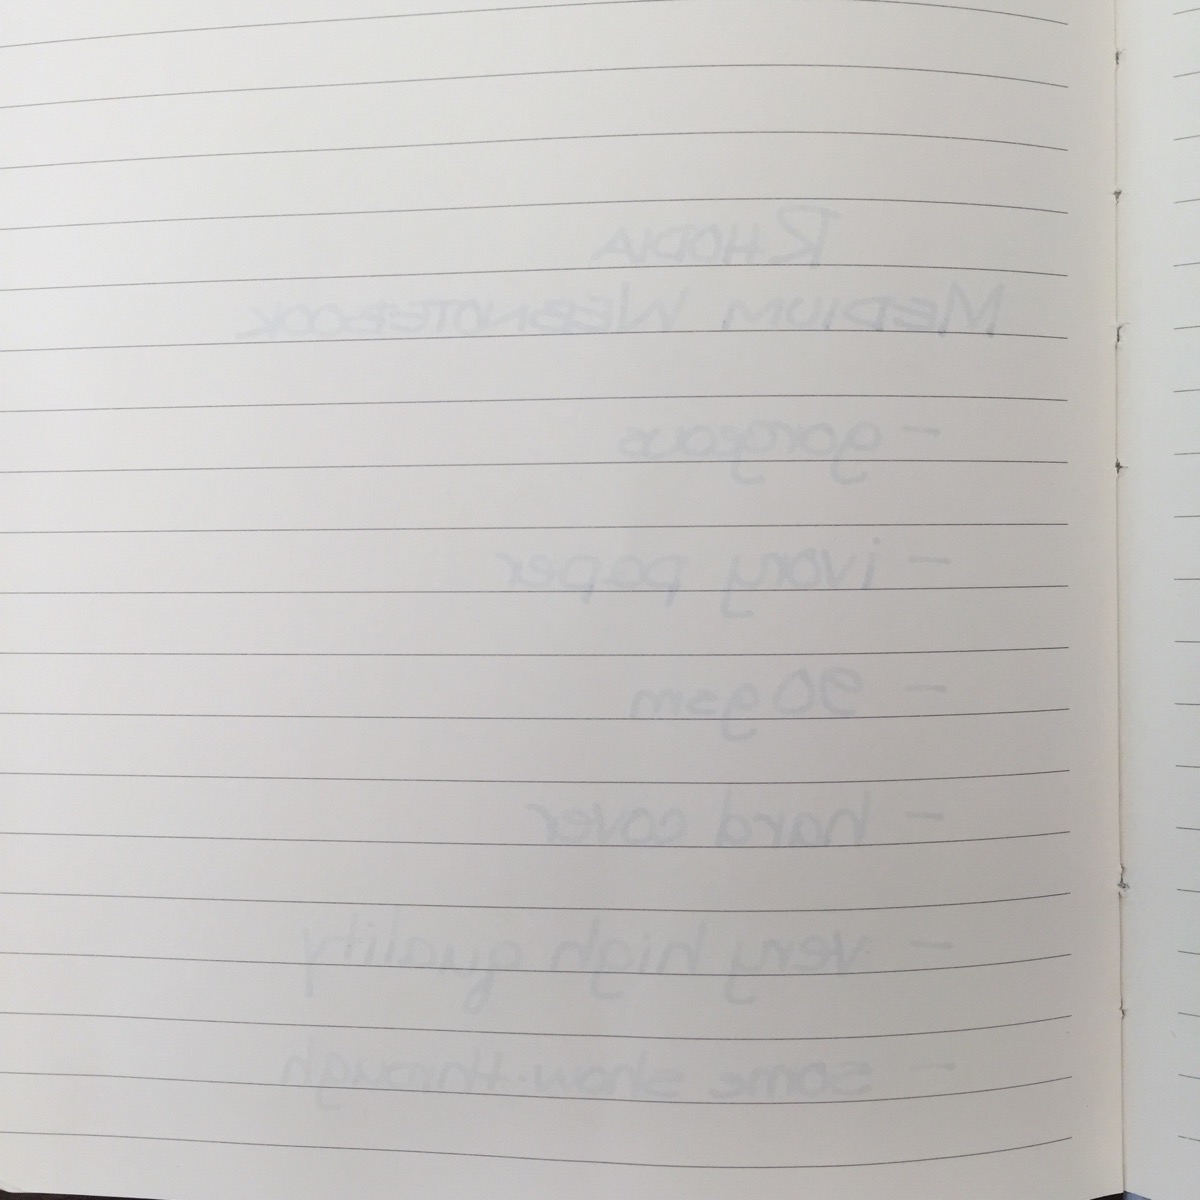 RHODIA
MEDIUM WEBNOTEBOOK
- gorgeous
- ivory paper
- 90gsm
- hard cover
- very high quality
- some show-through